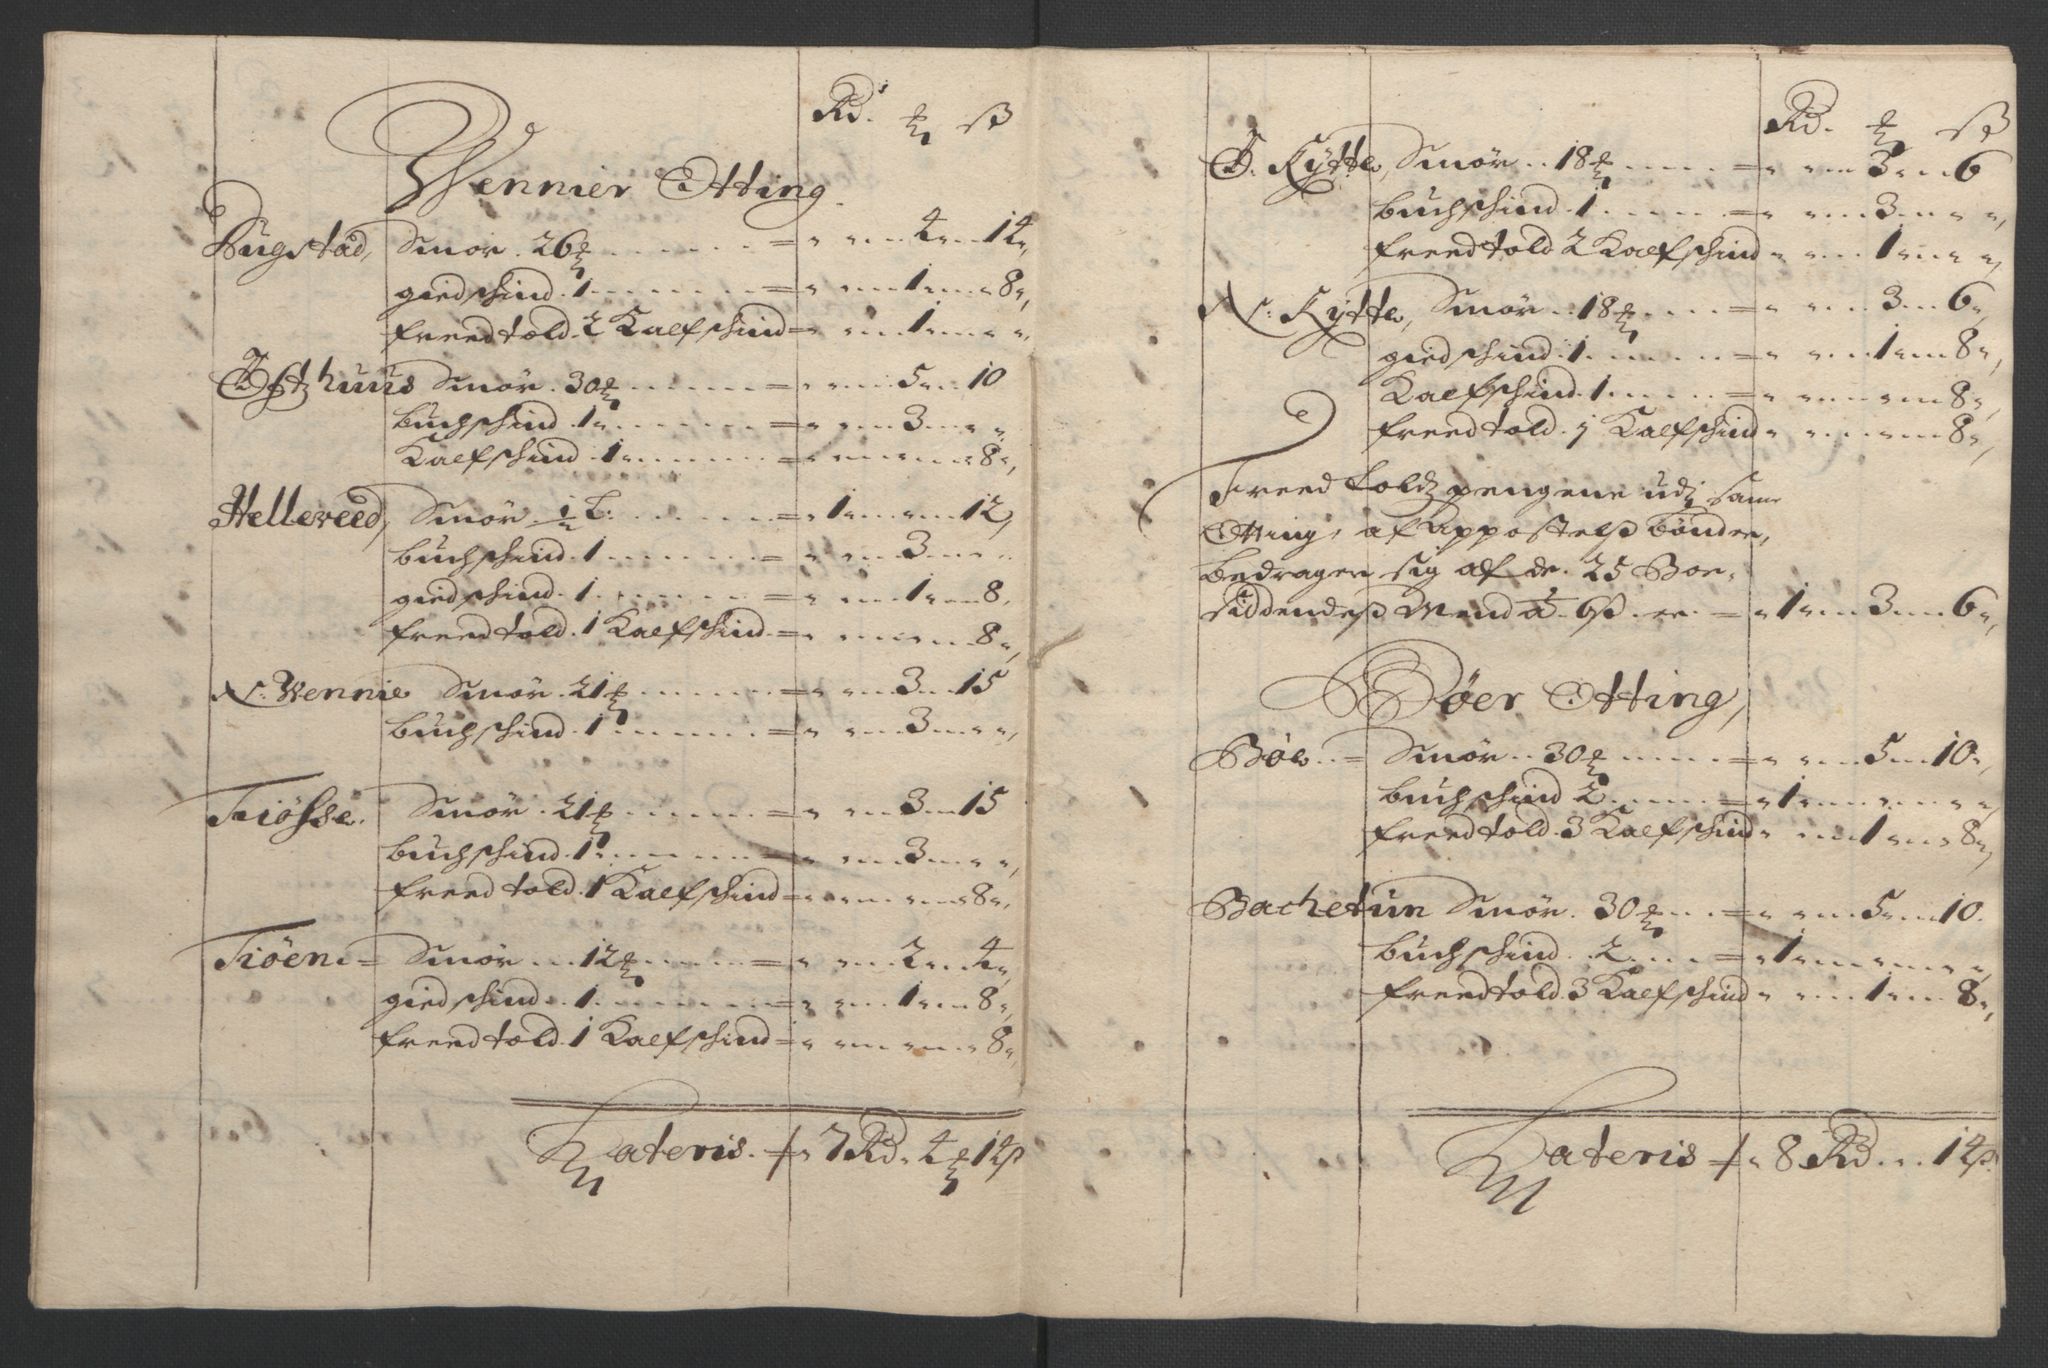 Rd. mk ß
Wennier Otting.
Bugstad, Smør . 26 mk = 4 14
giedschind . 1 = 1 8
freedtold . 2 Kalfschind = 1
Østhuus Smør . 30 mk = 5 10
buchschind . 1 = 3
Kalfschind . 1 = 8
Hellereed, Smør 1/2 L: = 1 12
buchschind . 1 = 3
giedschind . 1 = 1 8
freedtold . 1 Kalfschind = 8
N: Wennie Smør . 21 mk = 3 15
buchschind . 1 = 3
Tiøsse. Smør . 21 mk = 3 15
buchschind . 1 = 3
freedtold . 1 Kalfschind = 8
Tiøen = Smør 12 mk = 2 4
giedschind . 1 = 1 8
freedtold . 1 Kalfschind = 8
Lateris . 7 Rd. 4 mk 14 ß
Rd. mk ß
Ø. Kytte, Smør . 18 mk = 3 6
buchschind . 1 = 3
freedtold 2 Kalfschind 1
N: Kytte, Smør . 18 mk = 3 6
giedschind . 1 = 1 8
Kalfschind . 1 = 8
freedtold . 1 Kalfschind 8
Freedtoldz pengene udj same
Otting, af Appostelß bønder,
bedrager sig af de 25 Boe-
siddendeß Mend á 6 ß er = 1 3 6
Bøer Otting,
Bøe = Smør . 30 mk = 5 10
buchschind 2 = 1
freedtold . 3 Kalfschind 1 8
Bachetun Smør . 30 mk = 5 10
buchschind . 2 = 1
freedtold . 3 Kalfschind 1 8
Lateris 8 Rd. 14 ß